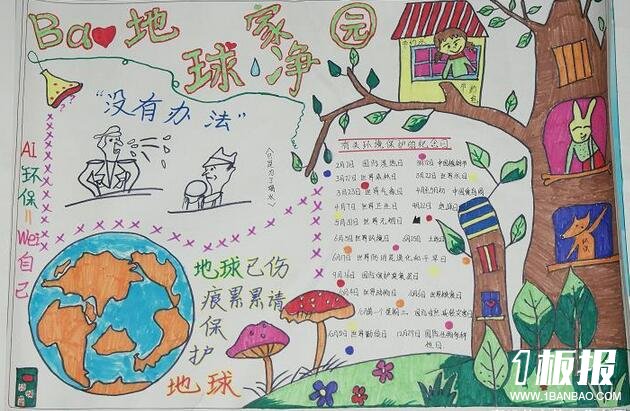 Ba❤地球家净园
"没有办法"
AI环保=Wei自己
地球已伤
痕累累请
保
护
地球
有关环境保护的纪念日
2月2日 国际湿地日
3月12日 中国植树节
3月21日 世界森林日
3月22日 世界水日
3月23日 世界气象日
4月7日 世界卫生日
4月22日 地球日
5月31日 世界无烟日
6月5日 世界环境日
6月25日 土地日
6月17日 世界防治荒漠化和干旱日
9月16日 国际保护臭氧层日
10月4日 世界动物日
12月29日 国际生物多样性日
1板报
WWW.1BANBAO.COM